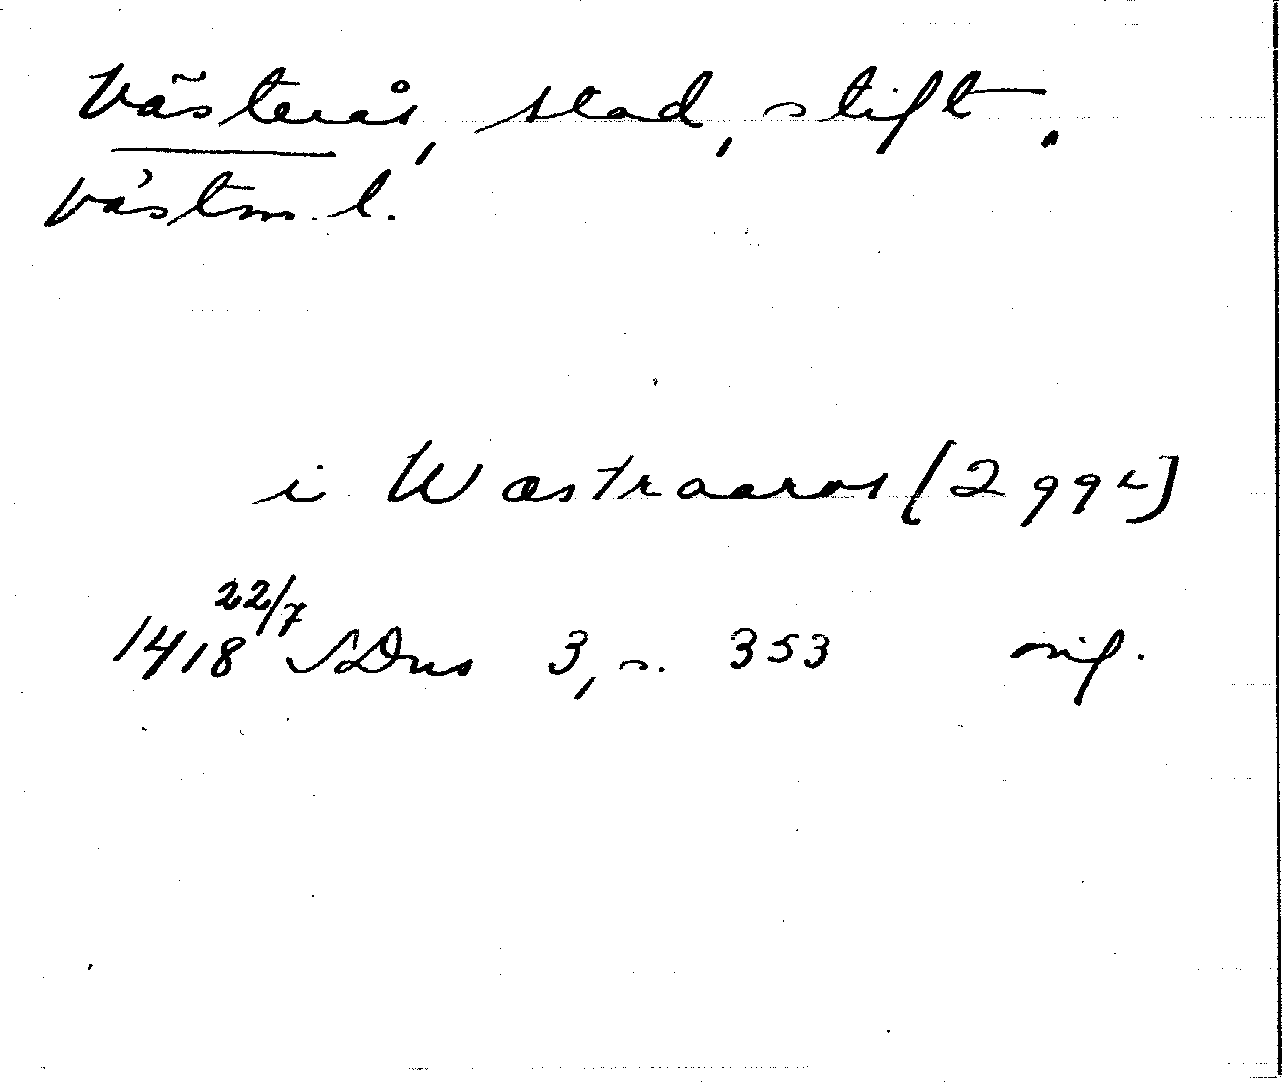 Västerås, stad, stift.
Västm. l.
i Wæstraaros [2 ggr]
1418 22/7 SDns 3, s. 353 orig.